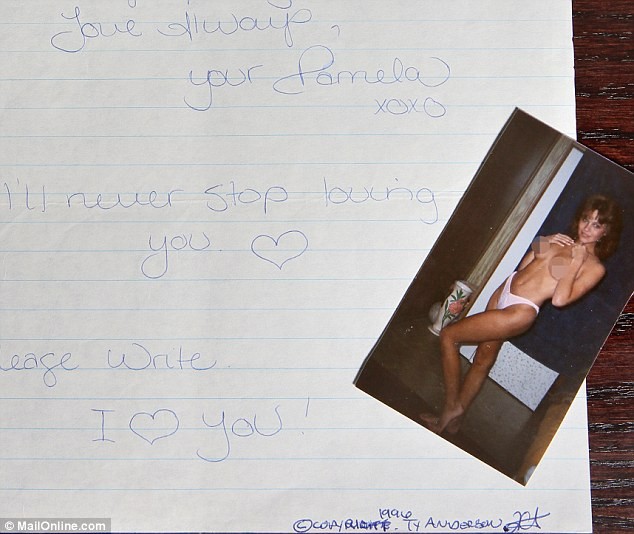 Love Always,
your Pamela
xoxo
I'll never stop loving
you. ♡
lease Write.
I ♡ you!
© COPYRIGHT 1996 TY ANDERSON
© MailOnline.com